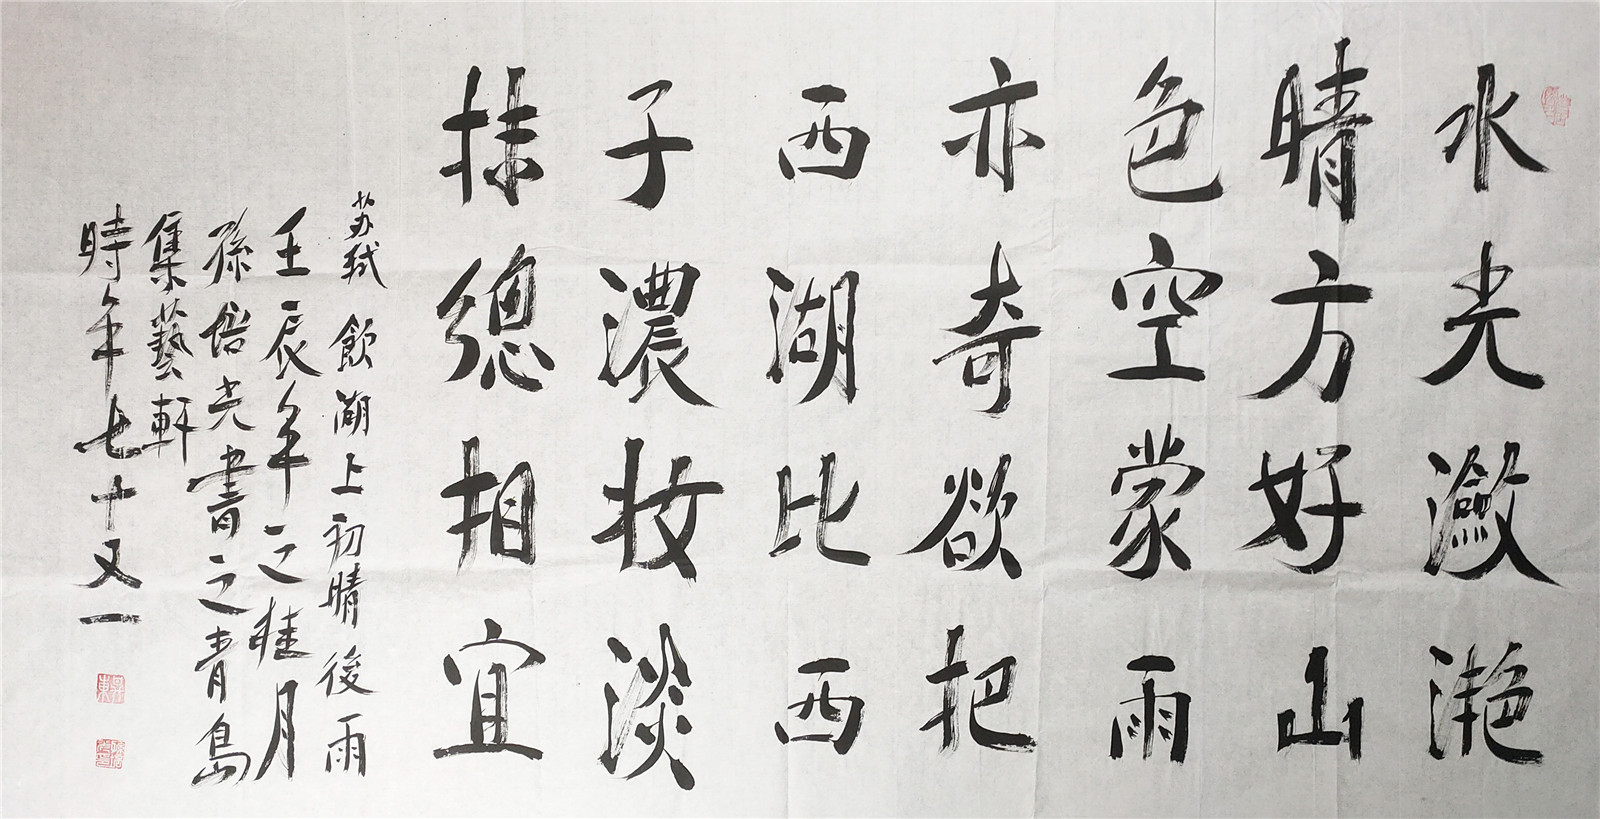 水光瀲滟
晴方好山
色空蒙雨
亦奇欲把
西湖比西
子濃妝淡
抹總相宜
苏軾 飲湖上初晴後雨
壬辰年之桂月
孫培光書之青島
集藝軒
時年七十又一